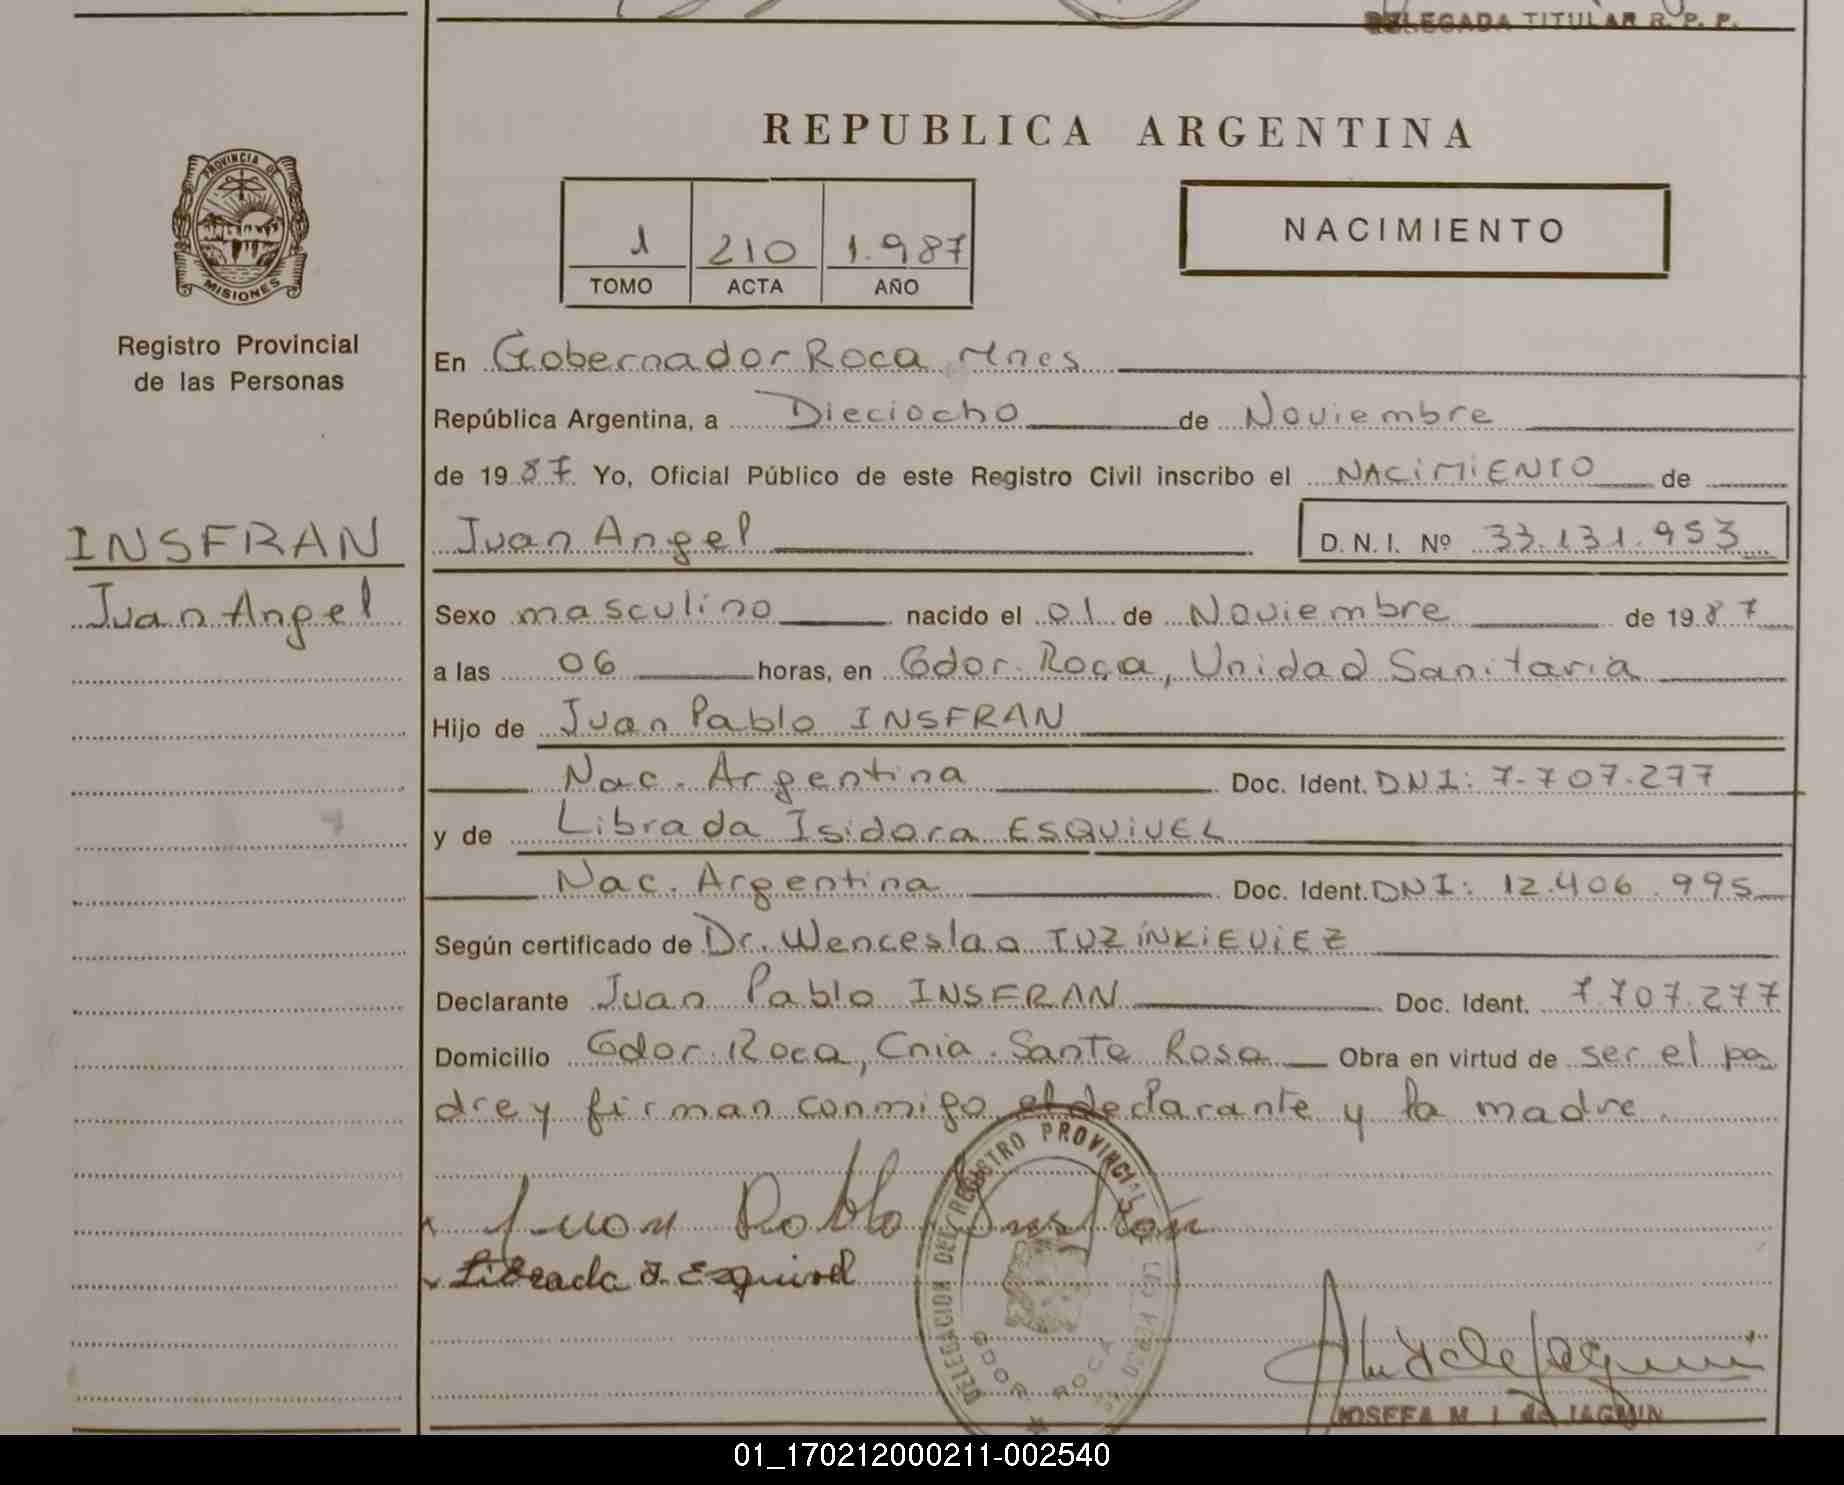 DELEGADA TITULAR R. P. P.
REPUBLICA ARGENTINA
PROVINCIA DE
MISIONES
Registro Provincial
de las Personas
1 210 1.987
TOMO ACTA AÑO
NACIMIENTO
En Gobernador Roca Mnes
República Argentina, a Dieciocho de Noviembre
de 1987 Yo, Oficial Público de este Registro Civil inscribo el NACIMIENTO de
INSFRAN
Juan Angel
Juan Angel D. N. I. Nº 33.131.953
Sexo masculino nacido el 01 de Noviembre de 1987
a las 06 horas, en Gdor. Roca, Unidad Sanitaria
Hijo de Juan Pablo INSFRAN
Nac. Argentina Doc. Ident. DNI: 7.707.277
y de Librada Isidora ESQUIVEL
Nac. Argentina Doc. Ident. DNI: 12.406.995
Según certificado de Dr. Wenceslao TUZINKIEVIEZ
Declarante Juan Pablo INSFRAN Doc. Ident. 7.707.277
Domicilio Gdor. Roca, Cnia. Santa Rosa Obra en virtud de ser el pa
dre y firman conmigo el declarante y la madre.
Juan Pablo Insfrán
Librada I. Esquivel
DELEGACION DEL REGISTRO PROVINCIAL
GDOR ROCA
JOSEFA M. I. de JAGMIN
01_170212000211-002540